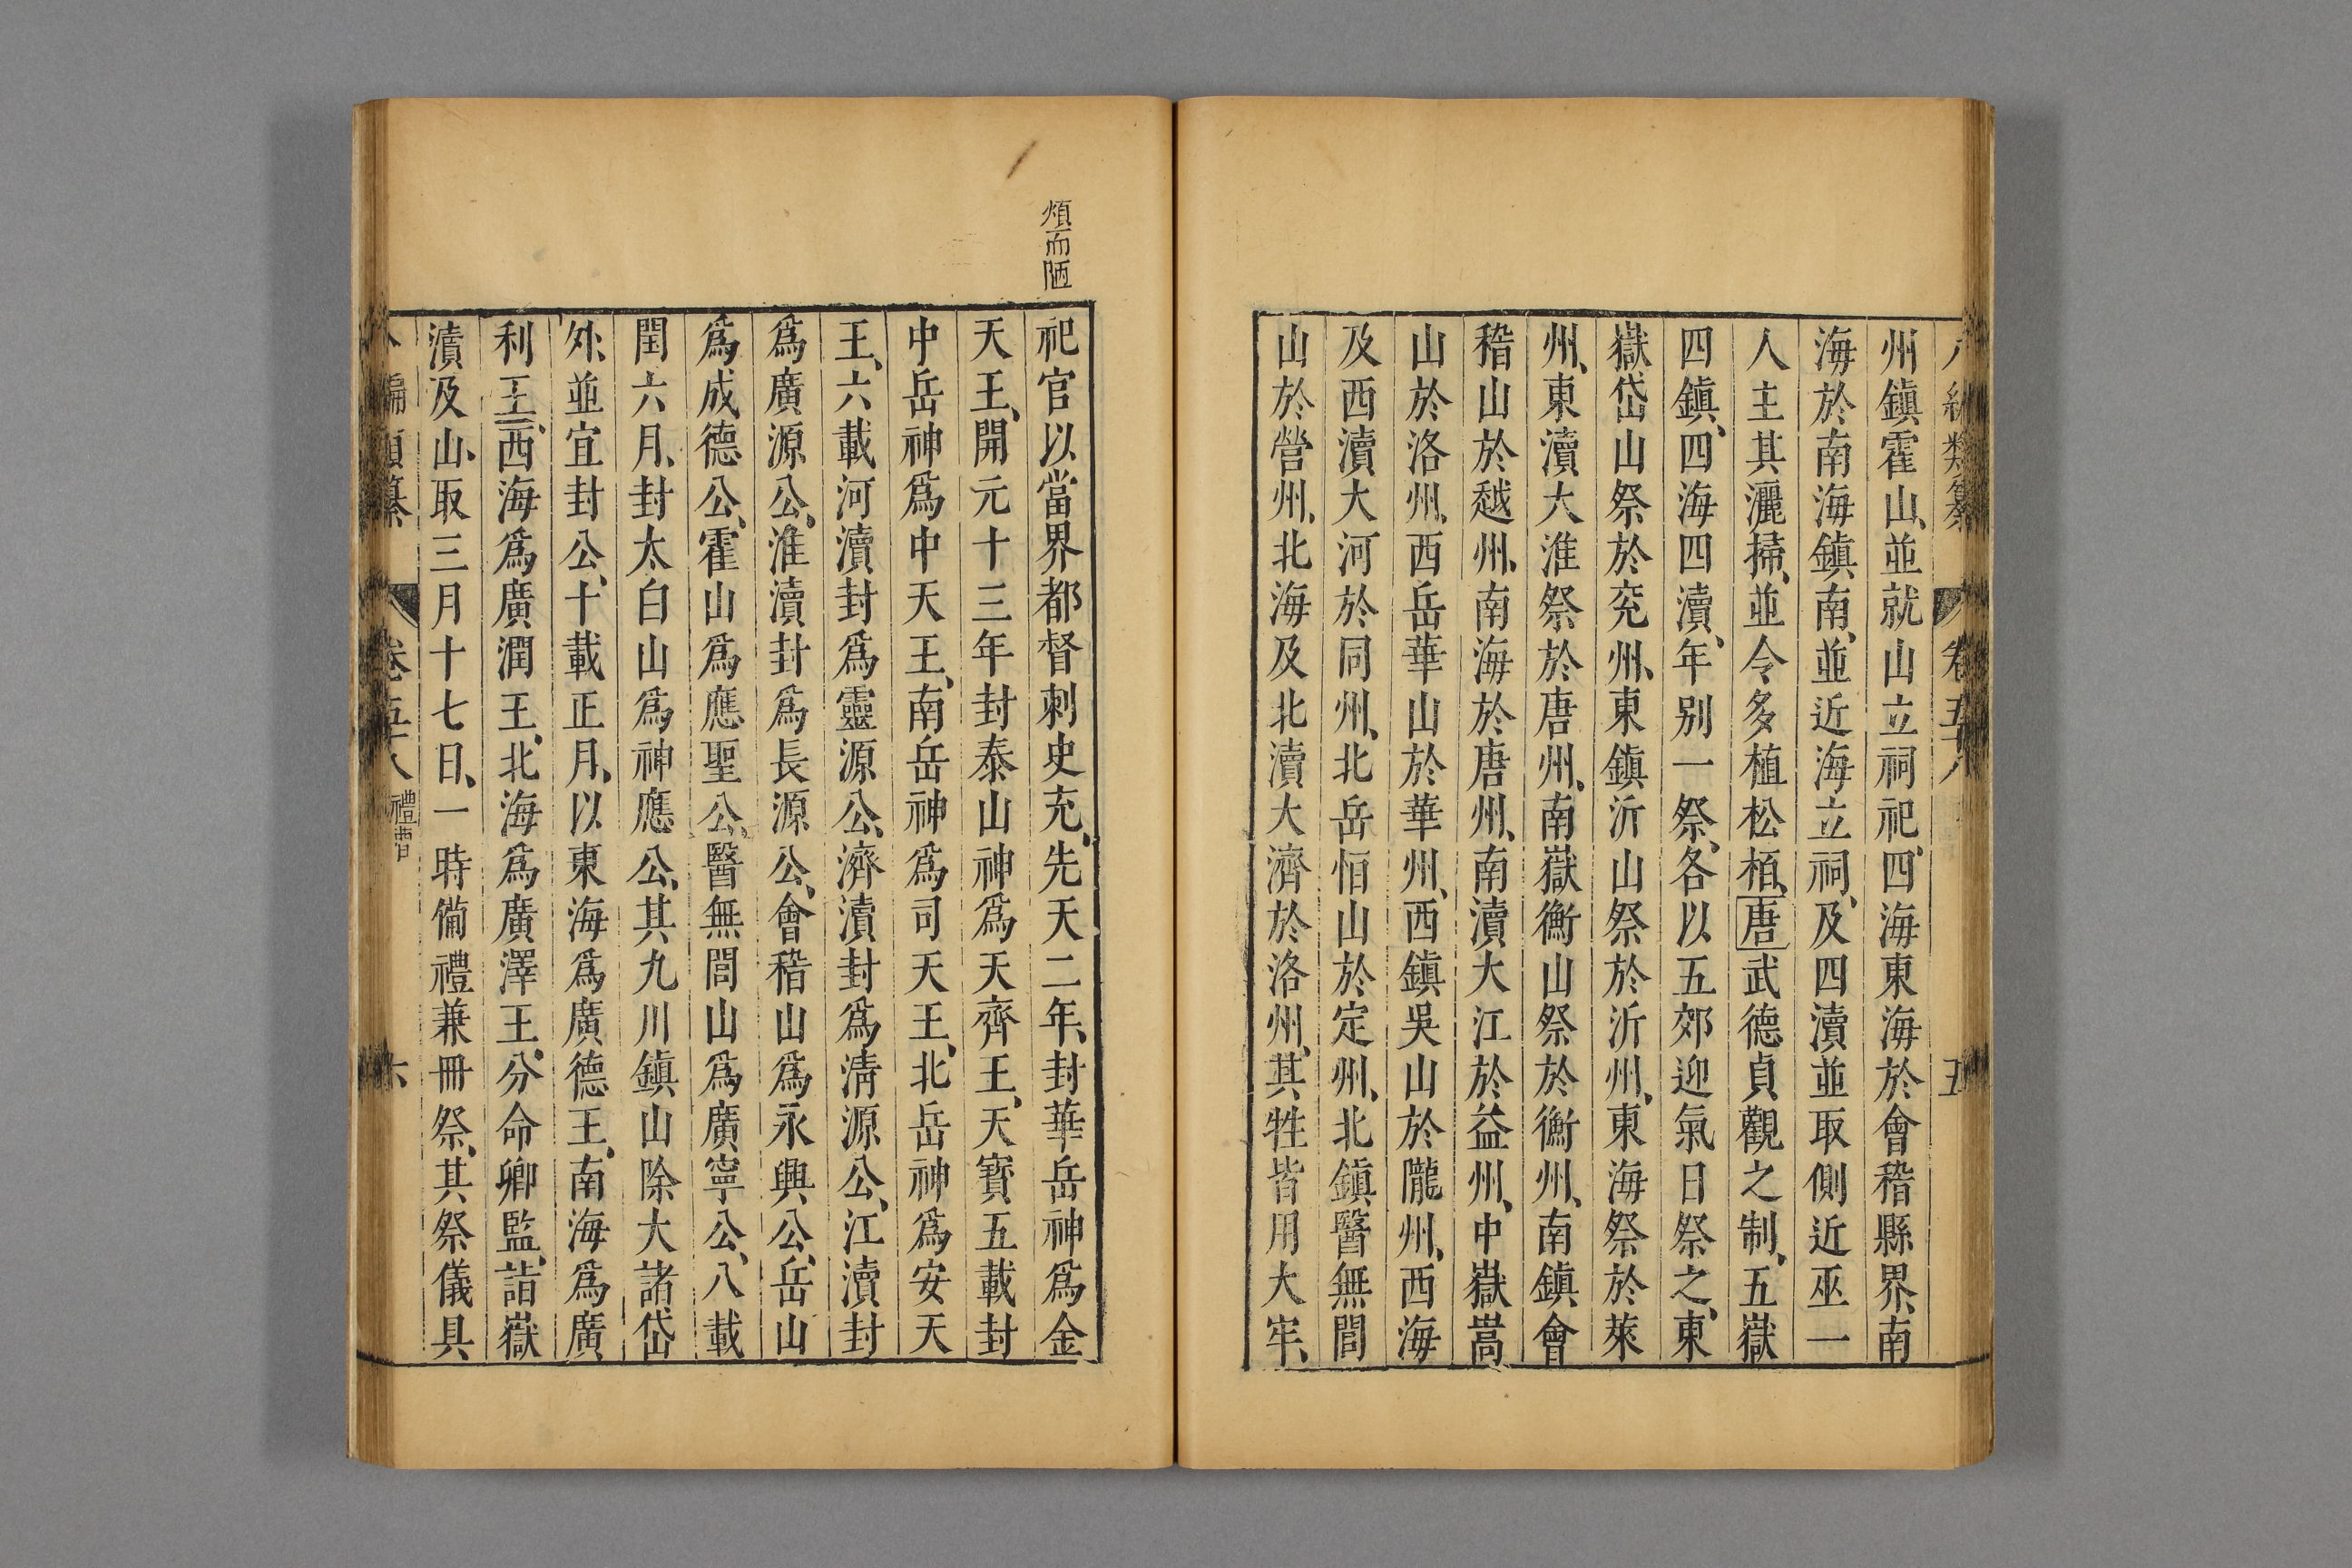 州鎮霍山、並就山立祠祀、四海東海於會稽縣界、南
海於南海鎮南、並近海立祠、及四瀆並取側近巫一
人主其灑掃、並令多植松栢、唐武德貞觀之制、五嶽
四鎮、四海四瀆、年别一祭、各以五郊迎氣日祭之、東
嶽岱山祭於兖州、東鎮沂山祭於沂州、東海祭於萊
州、東瀆大淮祭於唐州、南嶽衡山祭於衡州、南鎮會
稽山於越州、南海於唐州、南瀆大江於益州、中嶽嵩
山於洛州、西岳華山於華州、西鎮吳山於隴州、西海
及西瀆大河於同州、北岳恒山於定州、北鎮醫無閭
山於營州、北海及北瀆大濟於洛州、其牲皆用大牢、
煩而陋
祀官以當界都督刺史充、先天二年、封華岳神爲金
天王、開元十三年封泰山神爲天齊王、天寳五載封
中岳神爲中天王、南岳神爲司天王、北岳神爲安天
王、六載河瀆封爲靈源公、濟瀆封爲淸源公、江瀆封
爲廣源公、淮瀆封爲長源公、會稽山爲永興公、岳山
爲成德公、霍山爲應聖公、醫無閭山爲廣寧公、八載
閏六月、封太白山爲神應公、其九川鎮山除大諸岱
外、並宜封公、十載正月、以東海爲廣德王、南海爲廣
利王、西海爲廣潤王、北海爲廣澤王、分命卿監、詣嶽
瀆及山、取三月十七日、一時備禮兼冊祭、其祭儀具
卷五十八 禮曹 六